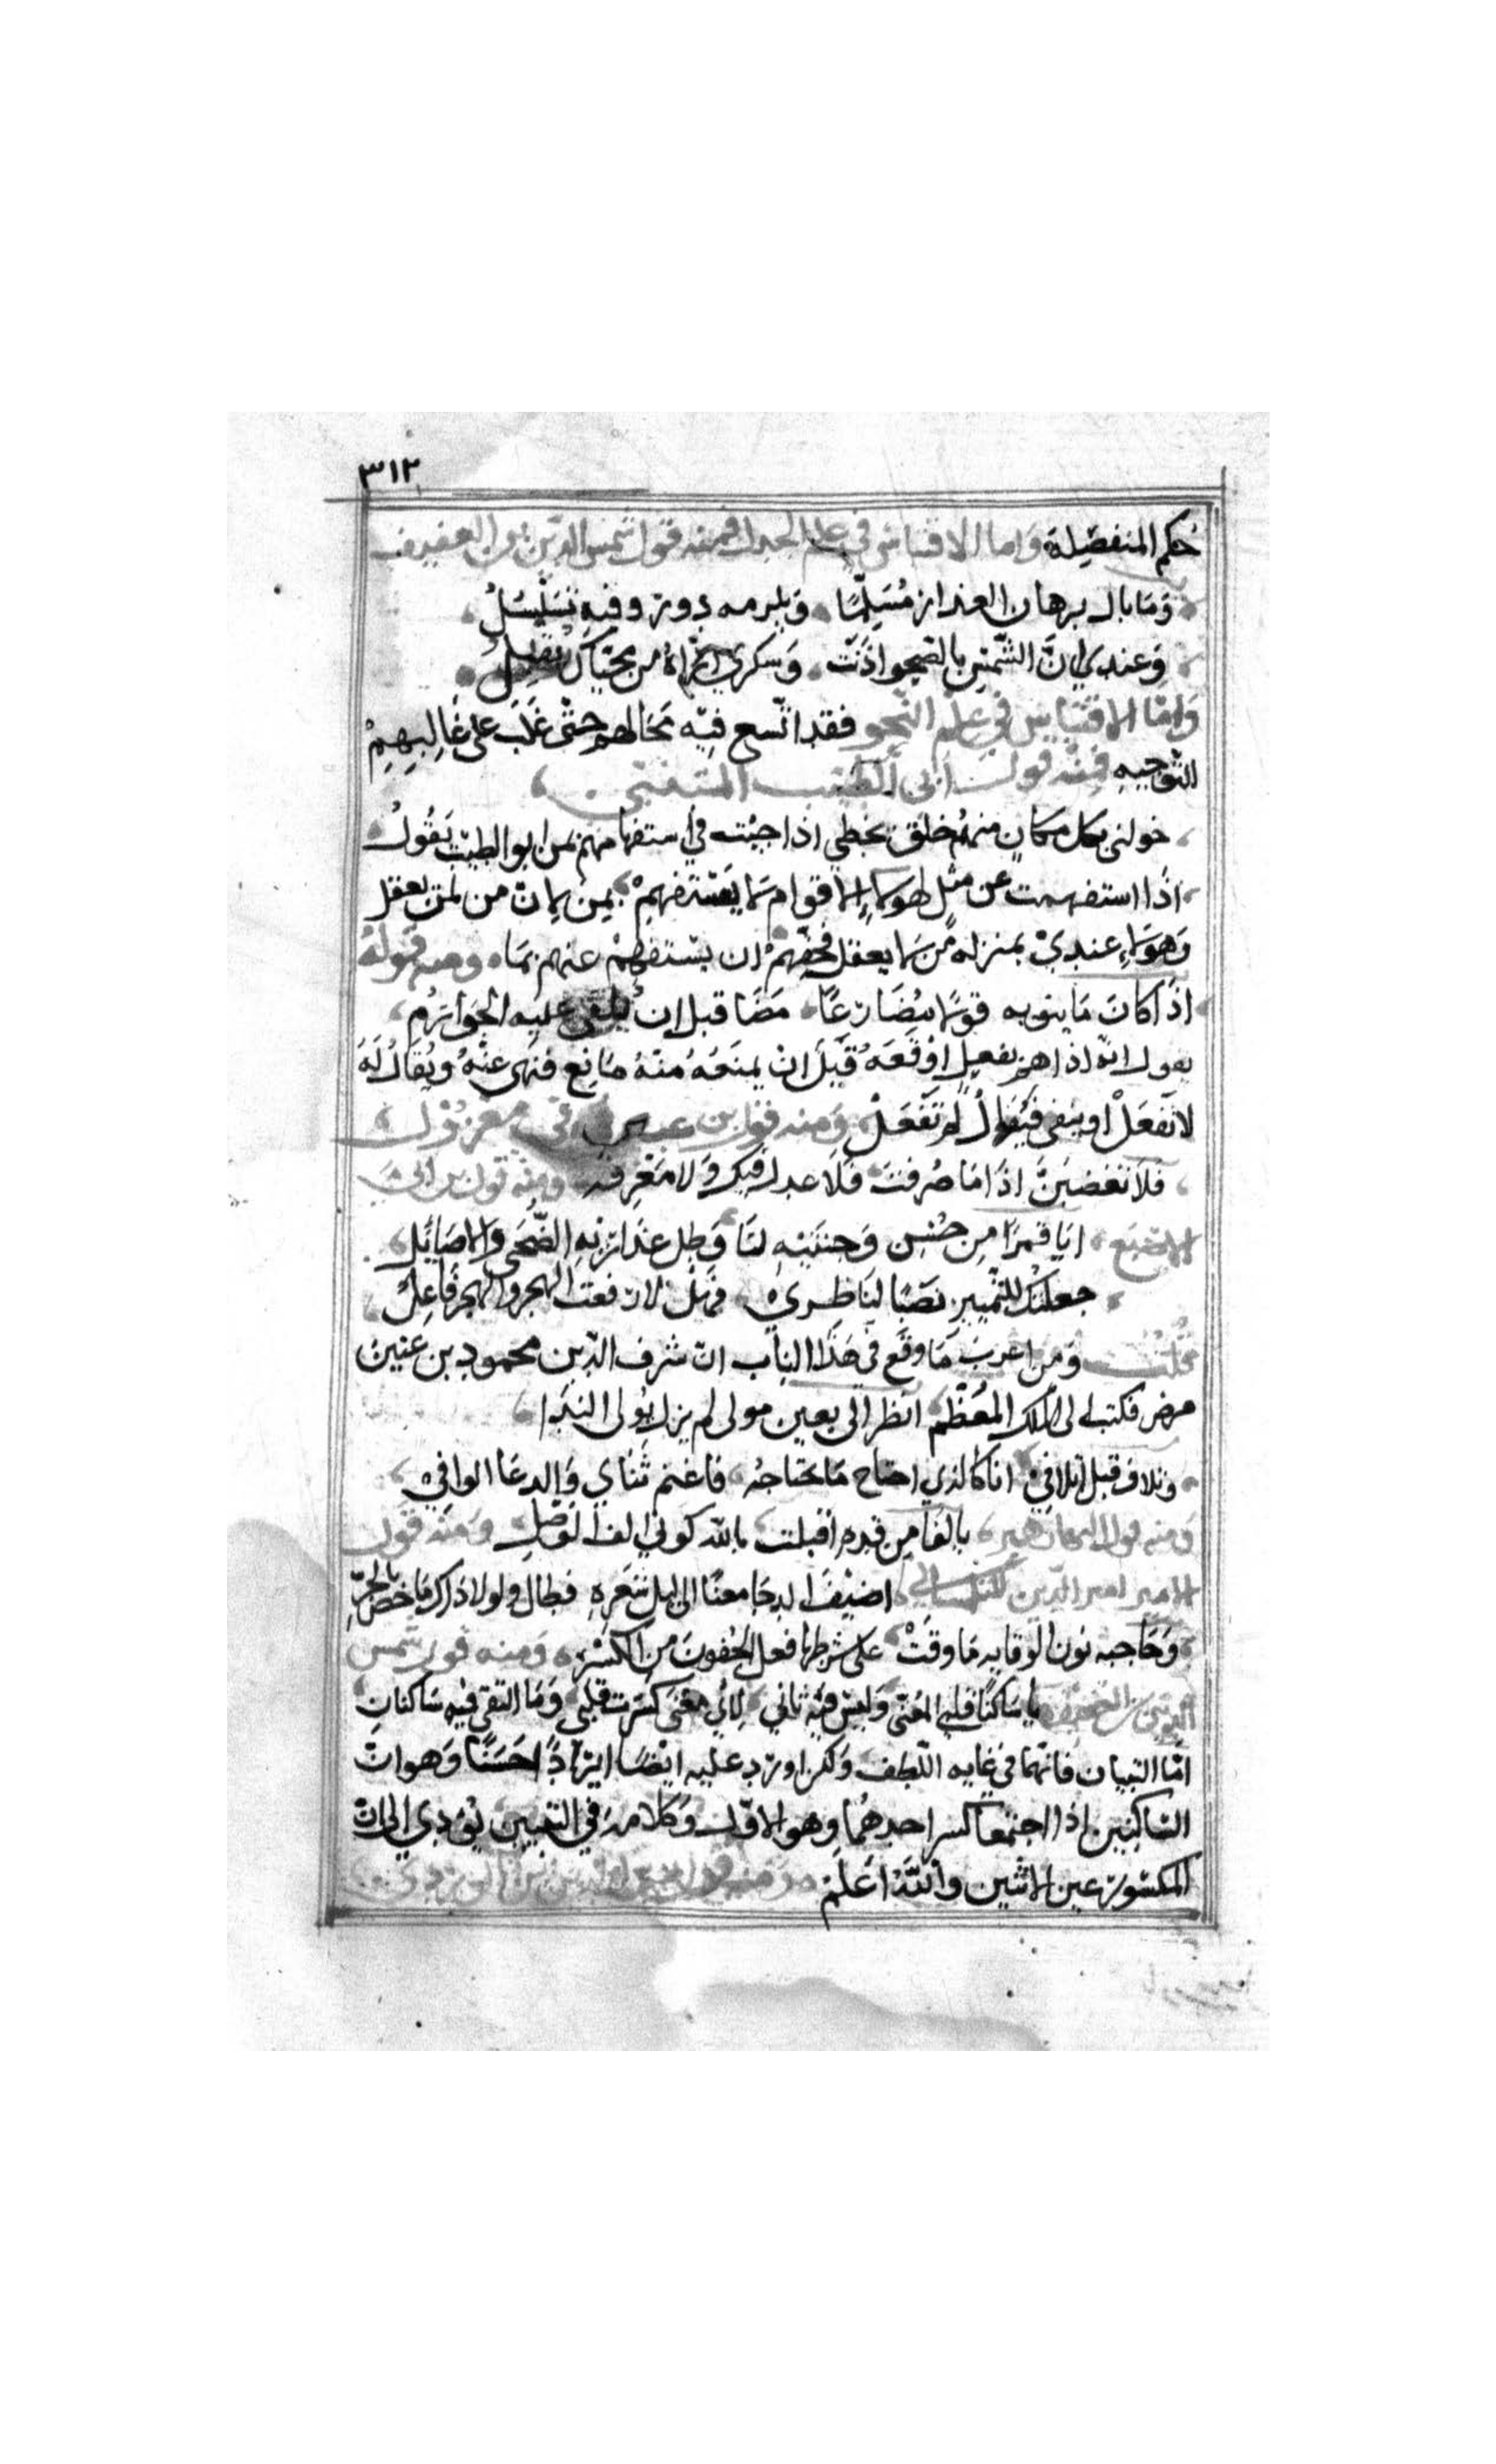 ٣١٢
حكم المنفصلة واما الاقتباس في علم الجدل فمنه قول شمس الدين بن العفيف
وما بال برهان العذار مسلما ويلزمه دور وفيه تسلسل
وعندي ان الشمس بالصحو اذنت وسكري اراه من محياك يقبل
واما الاقتباس في علم النحو فقد اتسع فيه مجالهم حتى غلب على غالبهم
التوجيه فمنه قول ابي الطيب المتنبي
حولي بكل مكان منهم خلق تخطي اذا جيت في استفهامهم بمن ابو الطيب يقول
اذا استفهمت عن مثل هولاء الاقوام لا يستفهم بمن لان من لمن يعقل
وهولاء عندي بمنزله من لا يعقل فحقهم ان يستفهم عنهم بما ومنه قوله
اذا كان ما ينويه قولا مضارعا مضا قبل ان يلقى عليه الجوازم
يقول انه اذا هم بفعل اوقعه قبل ان يمنعه منه مانع فنهى عنه ويقال له
لا تفعل او ينفى فيقال لم تفعل ومنه قول بن عنين في معزول
فلا تغضبن اذا ما صرفت فلا عدل فيك ولا معرفه ومنه قول بن ابي
الاصبع ايا قمرا من حسن وجنتيه لنا وظل عذاريه الضحى والاصائل
جعلتك للتمييز نصبا لناظري فهل لا رفعت الهجر والهجر فاعل
قلت ومن اغرب ما وقع في هذا الباب ان شرف الدين محمود بن عنين
مرض فكتب الى الملك المعظم انظر الي بعين مولى لم يزل يولى الندا
وتلاف قبل تلافي انا كالذي احتاج ما يحتاجه فاغنم ثناي والدعا الوافي
ومنه قول البها زهير يا الفا من قده اقبلت بالله كوني الف الوصل ومنه قول
الامير امير الدين السليماني اضيف الدجا معنا الى ليل شعره فطال ولولا ذاك ما خص بالجر
وحاجبه نون الوقايه ما وقت على شرطها فعل الجفون من الكسر ومنه قول شمس
الدين بن العفيف يا ساكنا قلبي المعنى وليس فيه ثاني لاي معنى كسرت قلبي وما التقى فيه ساكنان
اما البيتان فانهما في غايه اللطف ولكن اورد عليه ايضا ايرادا حسنا وهو ان
الساكنين اذا اجتمعا كسر احدهما وهو الاول وكلامه في البيتين يؤدي الى ان
المكسور عين الاثنين والله اعلم ومنه قول زين الدين بن الوردي